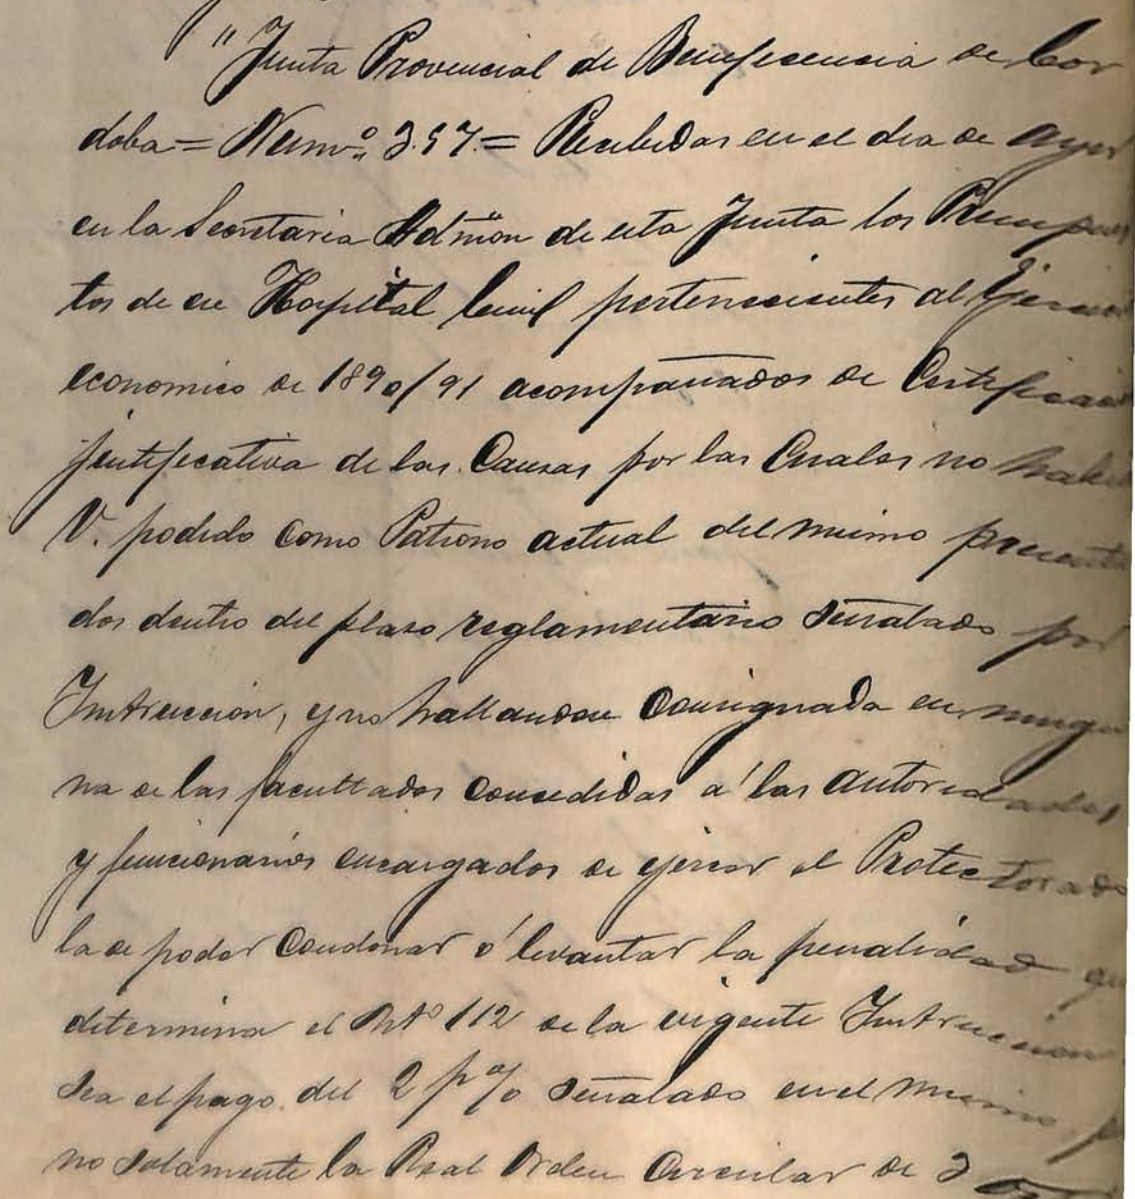 "Junta Provincial de Beneficencia de Cor
doba = Numº 357 = Recibidos en el dia de ayer
en la Secretaria Admōn de esta Junta los Presupues
tos de ese Hospital Civil pertenecientes al Ejercicio
economico de 1890/91 acompañados de Certificacion
justificativa de las Causas por las Cuales no haber
V. podido como Patrono actual del mismo presenta
dos dentro del plaso reglamentario señalado por
Instruccion, y no hallandose Consignada en ningu
na de las facultades concedidas a' las autoridades
y funcionarios encargados de ejercer el Protectorado
la de poder Condonar o' levantar la penalidad que
determina el Artº 112 de la vigente Instruccion
sea el pago del 2 p% señalado en el mismo
no solamente la Real Orden Circular de 2